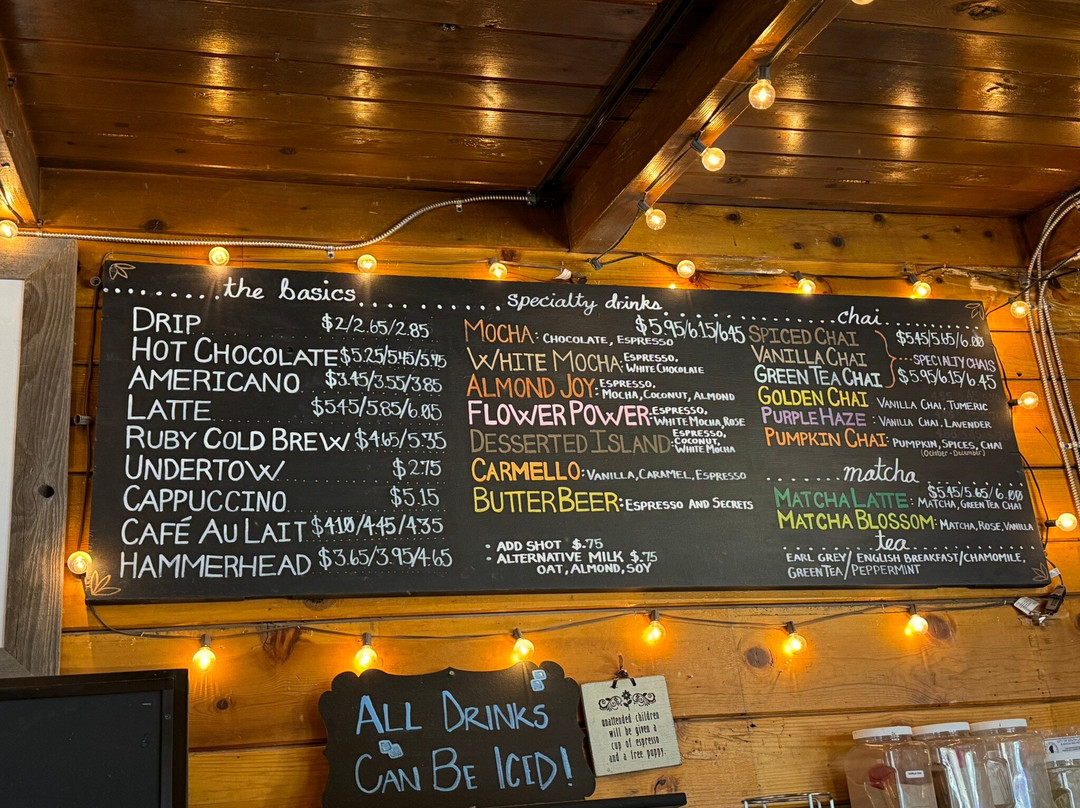 the basics
DRIP $2/2.65/2.85
HOT CHOCOLATE $5.25/5.45/5.95
AMERICANO $3.45/3.55/3.85
LATTE $5.45/5.85/6.05
RUBY COLD BREW $4.65/5.35
UNDERTOW $2.75
CAPPUCCINO $5.15
CAFÉ AU LAIT $4.10/4.45/4.35
HAMMERHEAD $3.65/3.95/4.65
specialty drinks
$5.95/6.15/6.45
MOCHA: CHOCOLATE, ESPRESSO
WHITE MOCHA: ESPRESSO,
WHITE CHOCOLATE
ALMOND JOY: ESPRESSO,
MOCHA, COCONUT, ALMOND
FLOWER POWER: ESPRESSO,
WHITE MOCHA, ROSE
DESSERTED ISLAND: ESPRESSO,
COCONUT,
WHITE MOCHA
CARMELLO: VANILLA, CARAMEL, ESPRESSO
BUTTERBEER: ESPRESSO AND SECRETS
• ADD SHOT $.75
• ALTERNATIVE MILK $.75
OAT, ALMOND, SOY
chai
SPICED CHAI $5.45/5.65/6.00
VANILLA CHAI SPECIALTY CHAIS
GREEN TEA CHAI $5.95/6.15/6.45
GOLDEN CHAI VANILLA CHAI, TUMERIC
PURPLE HAZE: VANILLA CHAI, LAVENDER
PUMPKIN CHAI: PUMPKIN, SPICES, CHAI
(OCTOBER - DECEMBER)
matcha
$5.45/5.65/6.00
MATCHA LATTE: MATCHA, GREEN TEA CHAI
MATCHA BLOSSOM: MATCHA, ROSE, VANILLA
tea
EARL GREY/ENGLISH BREAKFAST/CHAMOMILE,
GREEN TEA/PEPPERMINT
ALL DRINKS
CAN BE ICED!
unattended children
will be given a
cup of espresso
and a free puppy